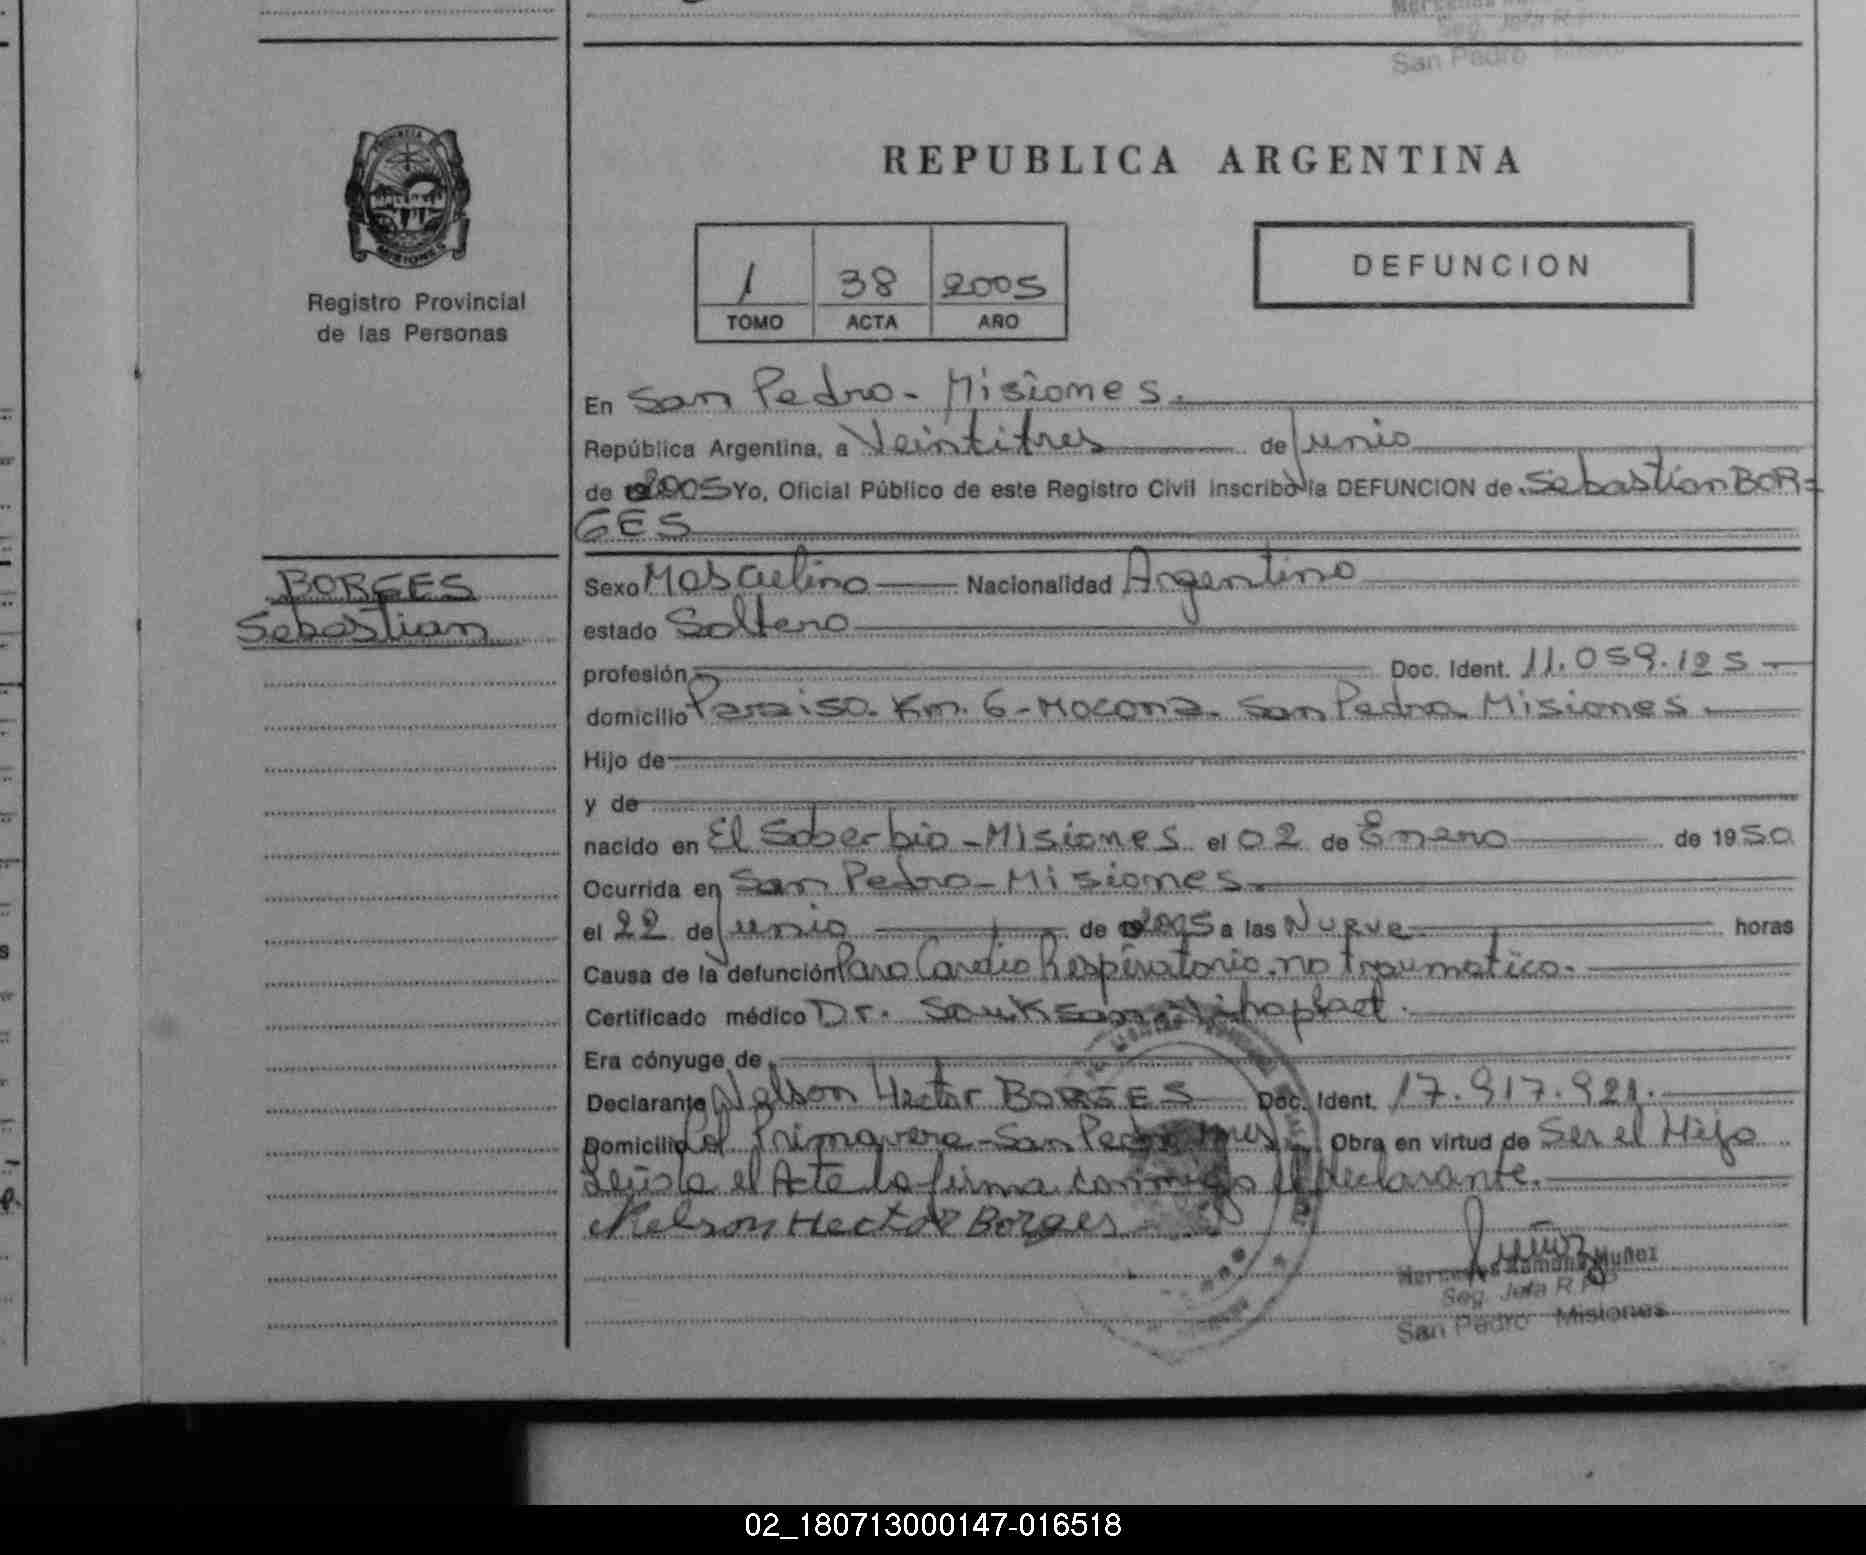 San Pedro
REPUBLICA ARGENTINA
PROVINCIA
MISIONES
Registro Provincial
de las Personas
1 38 2005
TOMO ACTA AÑO
DEFUNCION
En San Pedro - Misiones.
República Argentina, a Veintitres de Junio
de 2005 Yo, Oficial Público de este Registro Civil inscribo la DEFUNCION de Sebastian BOR=
GES
BORGES
Sebastian
Sexo Masculino Nacionalidad Argentino
estado Soltero
profesión Doc. Ident. 11.059.125
domicilio Paraiso. Km. 6 - Mocona. San Pedro Misiones.
Hijo de
y de
nacido en El Soberbio - Misiones. el 02 de Enero de 1950
Ocurrida en San Pedro - Misiones.
el 22 de Junio de 2005 a las Nueve horas
Causa de la defunción Paro Cardio Respiratorio. no traumatico.
Certificado médico Dr.
Era cónyuge de
Declarante Nelson Hector BORGES Doc. Ident. 17.917.921.
Domicilio Col Primavera - San Pedro Mnes Obra en virtud de Ser el Hijo
Leida el Acta la firma conmigo el declarante.
Nelson Hector Borges
Mercedes Ramona Muñoz
Seg. Jefa R.P.P
San Pedro Misiones
02_180713000147-016518